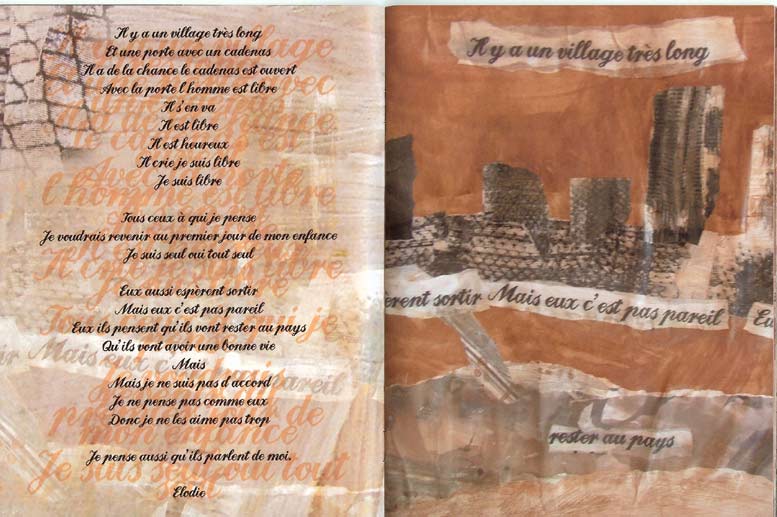 Il y a un village très long
Et une porte avec un cadenas
Il a de la chance le cadenas est ouvert
Avec la porte l'homme est libre
Il s'en va
Il est libre
Il est heureux
Il crie je suis libre
Je suis libre
Tous ceux à qui je pense
Je voudrais revenir au premier jour de mon enfance
Je suis seul oui tout seul
Eux aussi espèrent sortir
Mais eux c'est pas pareil
Eux ils pensent qu'ils vont rester au pays
Qu'ils vont avoir une bonne vie
Mais
Mais je ne suis pas d'accord
Je ne pense pas comme eux
Donc je ne les aime pas trop
Je pense aussi qu'ils parlent de moi.
Elodie
Il y a un village très long
èrent sortir Mais eux c'est pas pareil
Eu
rester au pays